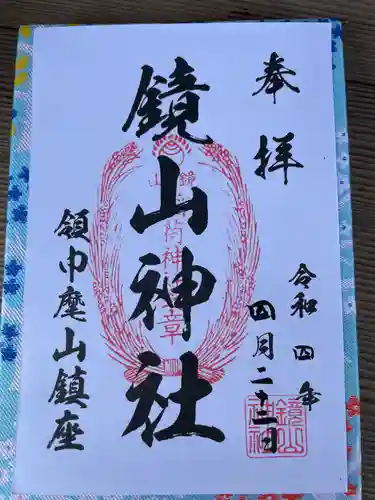 奉拝
令和四年
四月二十三日
鏡山神社
領巾麾山鎮座
鏡山神社